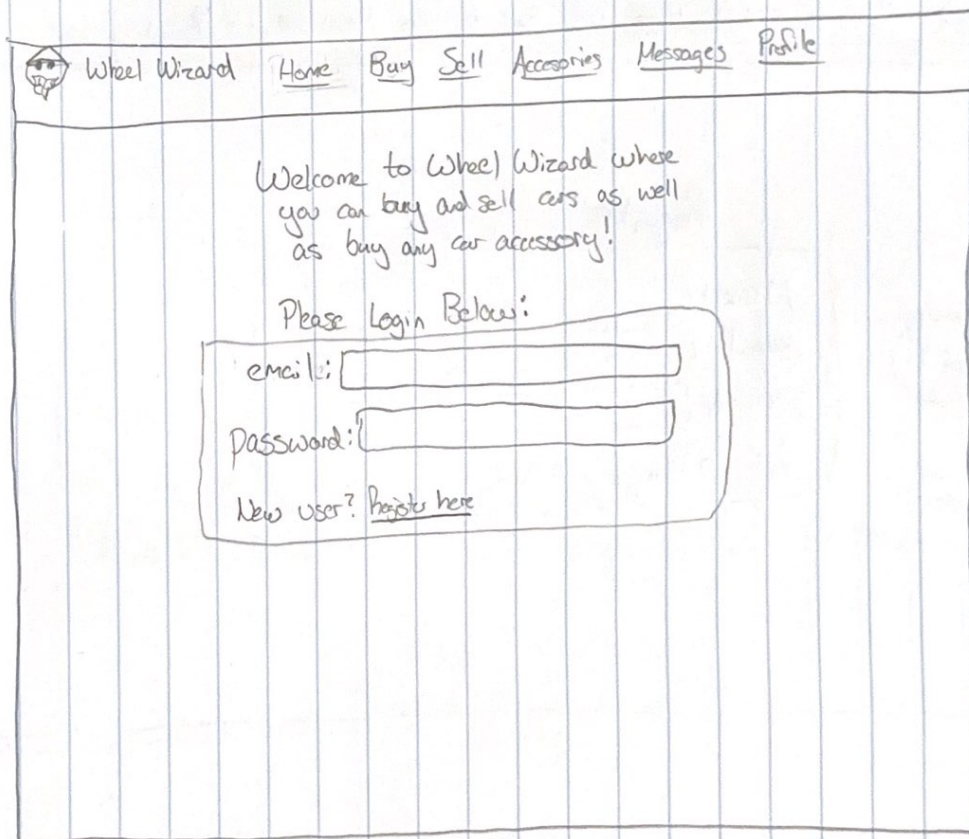 Wheel Wizard Home Buy Sell Accesories Messages Profile
Welcome to Wheel Wizard where
you can buy and sell cars as well
as buy any car accessory!
Please Login Below:
email:
password:
New user? Register here